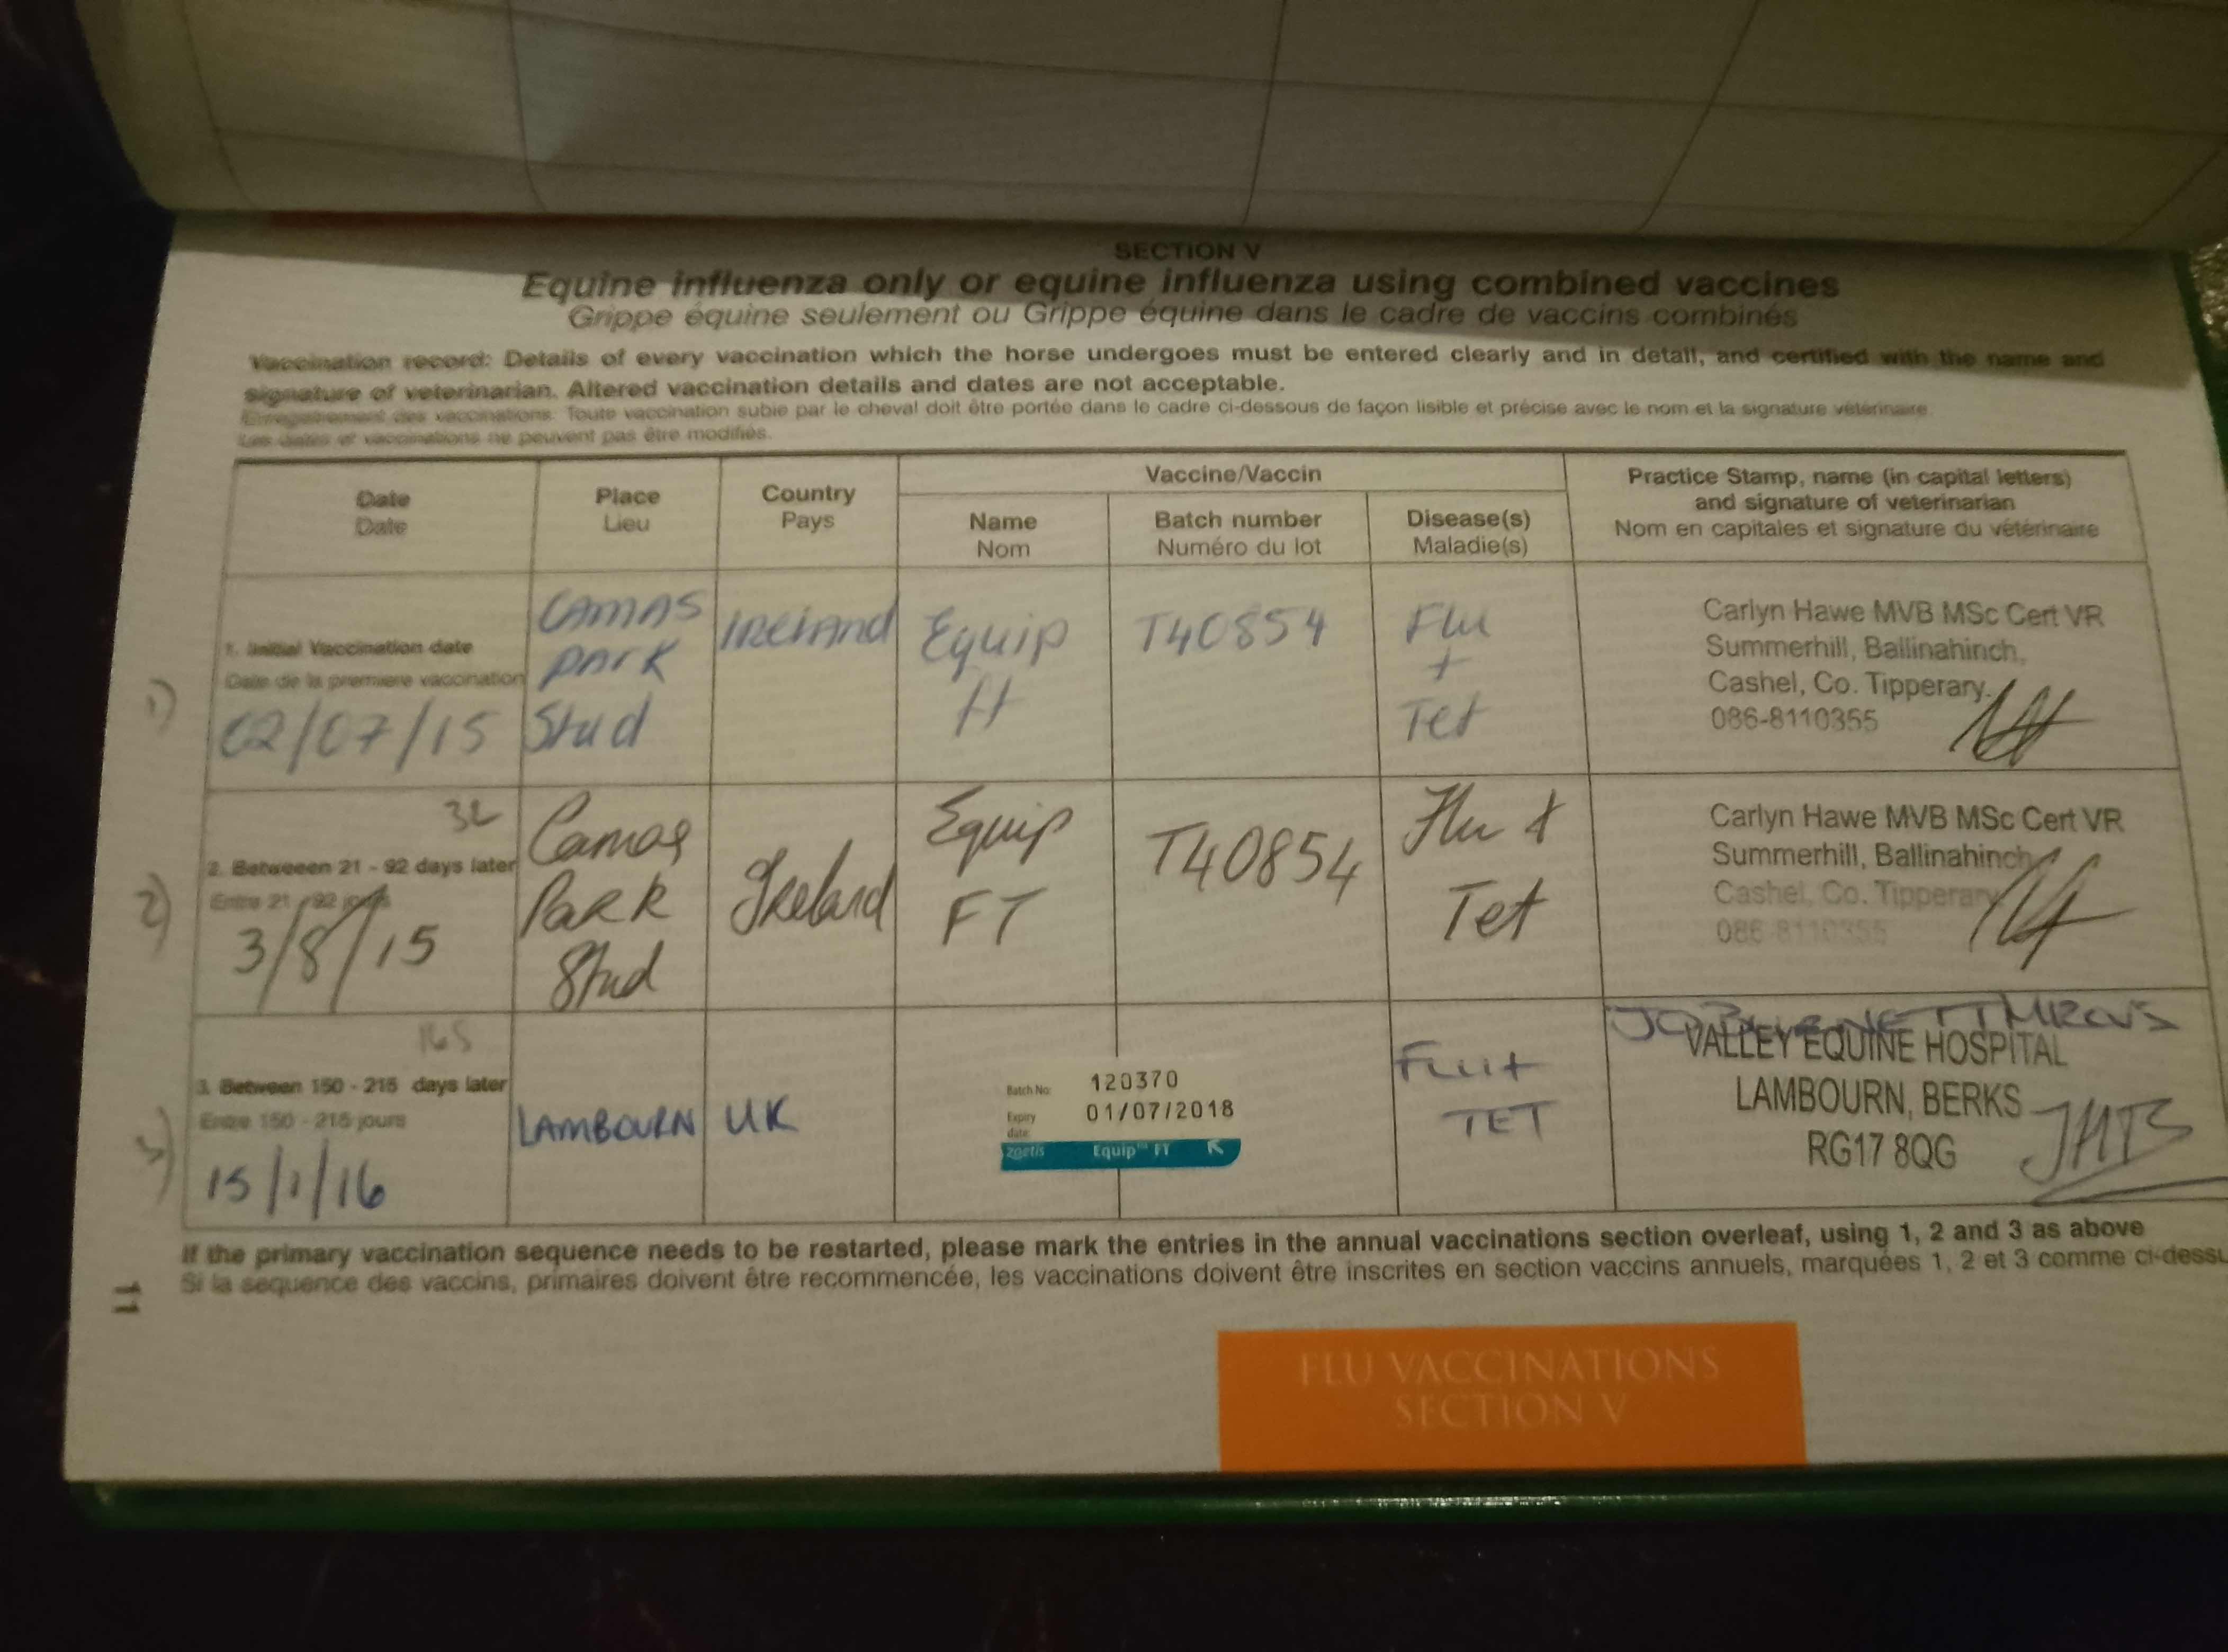 SECTION V
Equine influenza only or equine influenza using combined vaccines
Grippe équine seulement ou Grippe équine dans le cadre de vaccins combinés
Vaccination record: Details of every vaccination which the horse undergoes must be entered clearly and in detail, and certified with the name and
signature of veterinarian. Altered vaccination details and dates are not acceptable.
Enregistrement des vaccinations: Toute vaccination subie par le cheval doit être portée dans le cadre ci-dessous de façon lisible et précise avec le nom et la signature vétérinaire.
Les dates et vaccinations ne peuvent pas être modifiés.
Date
Date
Place
Lieu
Country
Pays
Vaccine/Vaccin
Name
Nom
Batch number
Numéro du lot
Disease(s)
Maladie(s)
Practice Stamp, name (in capital letters)
and signature of veterinarian
Nom en capitales et signature du vétérinaire
1)
1. Initial Vaccination date
Date de la premiere vaccination
02/07/15
CAMAS
PARK
Stud
IRELAND
Equip
T40854
Flu
+
Tet
Carlyn Hawe MVB MSc Cert VR
Summerhill, Ballinahinch,
Cashel, Co. Tipperary.
086-8110355
2)
32
2. Betweeen 21 - 92 days later
Entre 21 - 92 jours
3/8/15
Camas
Park
Stud
Ireland
Equip
FT
T40854
Flu +
Tet
Carlyn Hawe MVB MSc Cert VR
Summerhill, Ballinahinch
Cashel, Co. Tipperary
086-8110355
3)
165
3. Between 150 - 215 days later
Entre 150 - 215 jours
15/1/16
LAMBOURN
UK
Batch No: 120370
Expiry date: 01/07/2018
zoetis Equip™ FT
FLU+
TET
VALLEY EQUINE HOSPITAL
LAMBOURN, BERKS
RG17 8QG
If the primary vaccination sequence needs to be restarted, please mark the entries in the annual vaccinations section overleaf, using 1, 2 and 3 as above
Si la sequence des vaccins, primaires doivent être recommencée, les vaccinations doivent être inscrites en section vaccins annuels, marquées 1, 2 et 3 comme ci-dessu
11
FLU VACCINATIONS
SECTION V